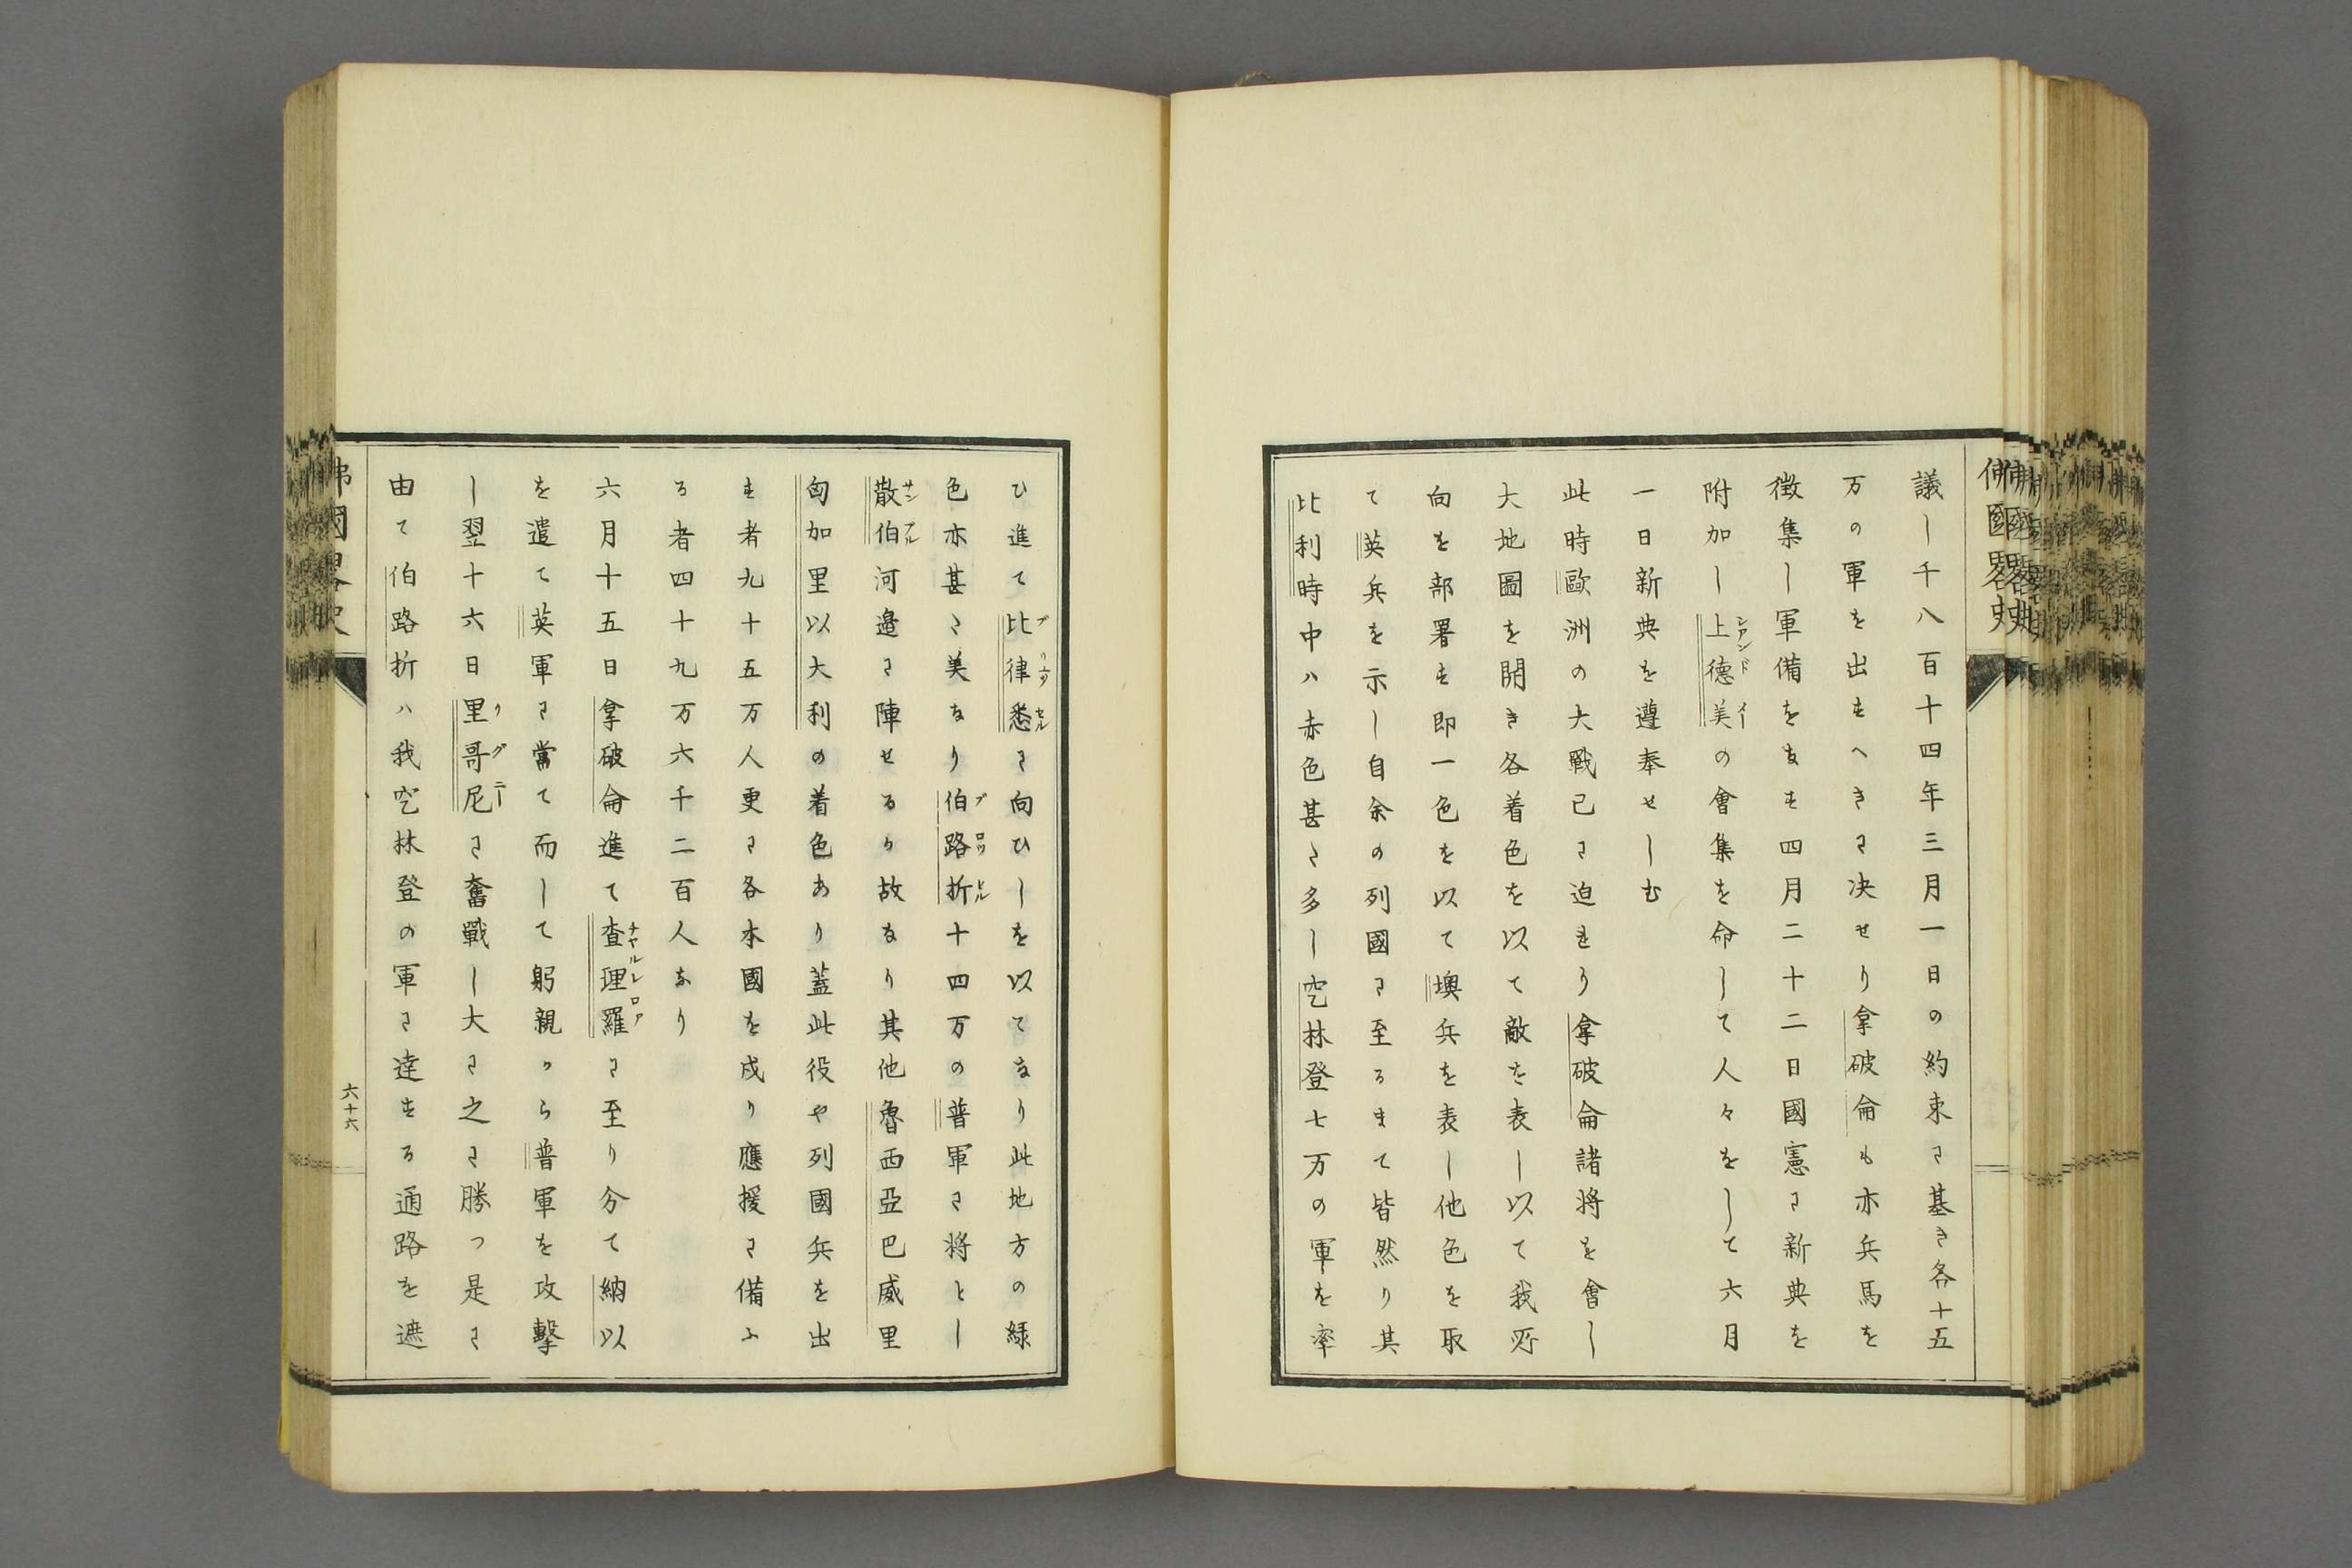 佛國畧史
議し千八百十四年三月一日の約束に基き各十五
万の軍を出すへきに决せり拿破侖も亦兵馬を
徴集し軍備をなす四月二十二日國憲に新典を
附加し上德美の會集を命して人々をして六月
シアンドイー
一日新典を遵奉せしむ
此時歐洲の大戰已に迫れり拿破侖諸将を會し
大地圖を開き各着色を以て敵を表し以て我所
向を部署す即一色を以て墺兵を表し他色を取
て英兵を示し自余の列國に至るまて皆然り其
比利時中ハ赤色甚た多し空林登七万の軍を率
ひ進て比律悉に向ひしを以てなり此地方の緑
ブリュッセル
色亦甚た美なり伯路折十四万の普軍に将とし
ブロツヒル
散伯河邉に陣せるか故なり其他魯西亞巴威里
サンブル
匈加里以大利の着色あり蓋此役や列國兵を出
す者九十五万人更に各本國を戍り應援に備ふ
る者四十九万六千二百人なり
六月十五日拿破侖進て査理羅に至り分て納以
チヤルレロア
を遣て英軍に當て而して躬親から普軍を攻擊
し翌十六日里哥尼に奮戰し大に之に勝つ是に
リグニー
由て伯路折ハ我空林登の軍に達する通路を遮
佛國畧史
六十六